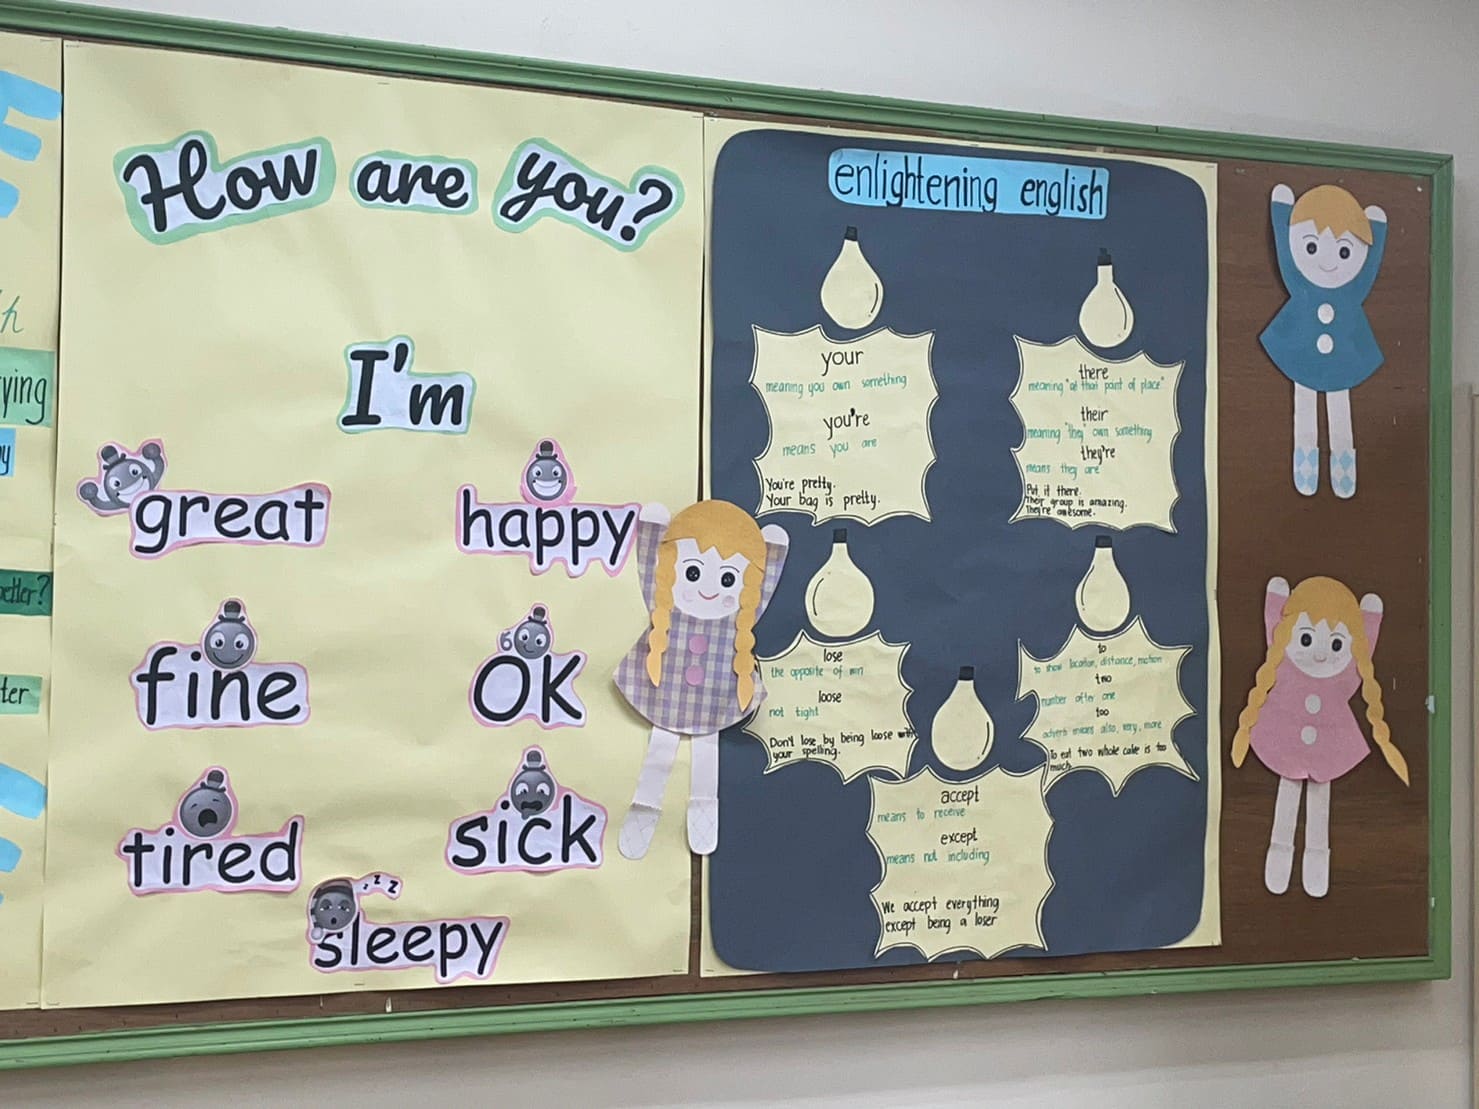 h
ying
y
better?
ter
How are you?
I'm
great
happy
fine
OK
tired
sick
z z z
sleepy
enlightening english
your
meaning you own something
you're
means you are
You're pretty.
Your bag is pretty.
there
meaning "at that point of place"
their
meaning "they" own something
they're
means they are
Put it there.
Their group is amazing.
They're awesome.
lose
the opposite of win
loose
not tight
Don't lose by being loose with
your spelling.
to
to show location, distance, motion
two
number after one
too
adverb means also, very, more
To eat two whole cake is too
much.
accept
means to receive
except
means not including
We accept everything
except being a loser